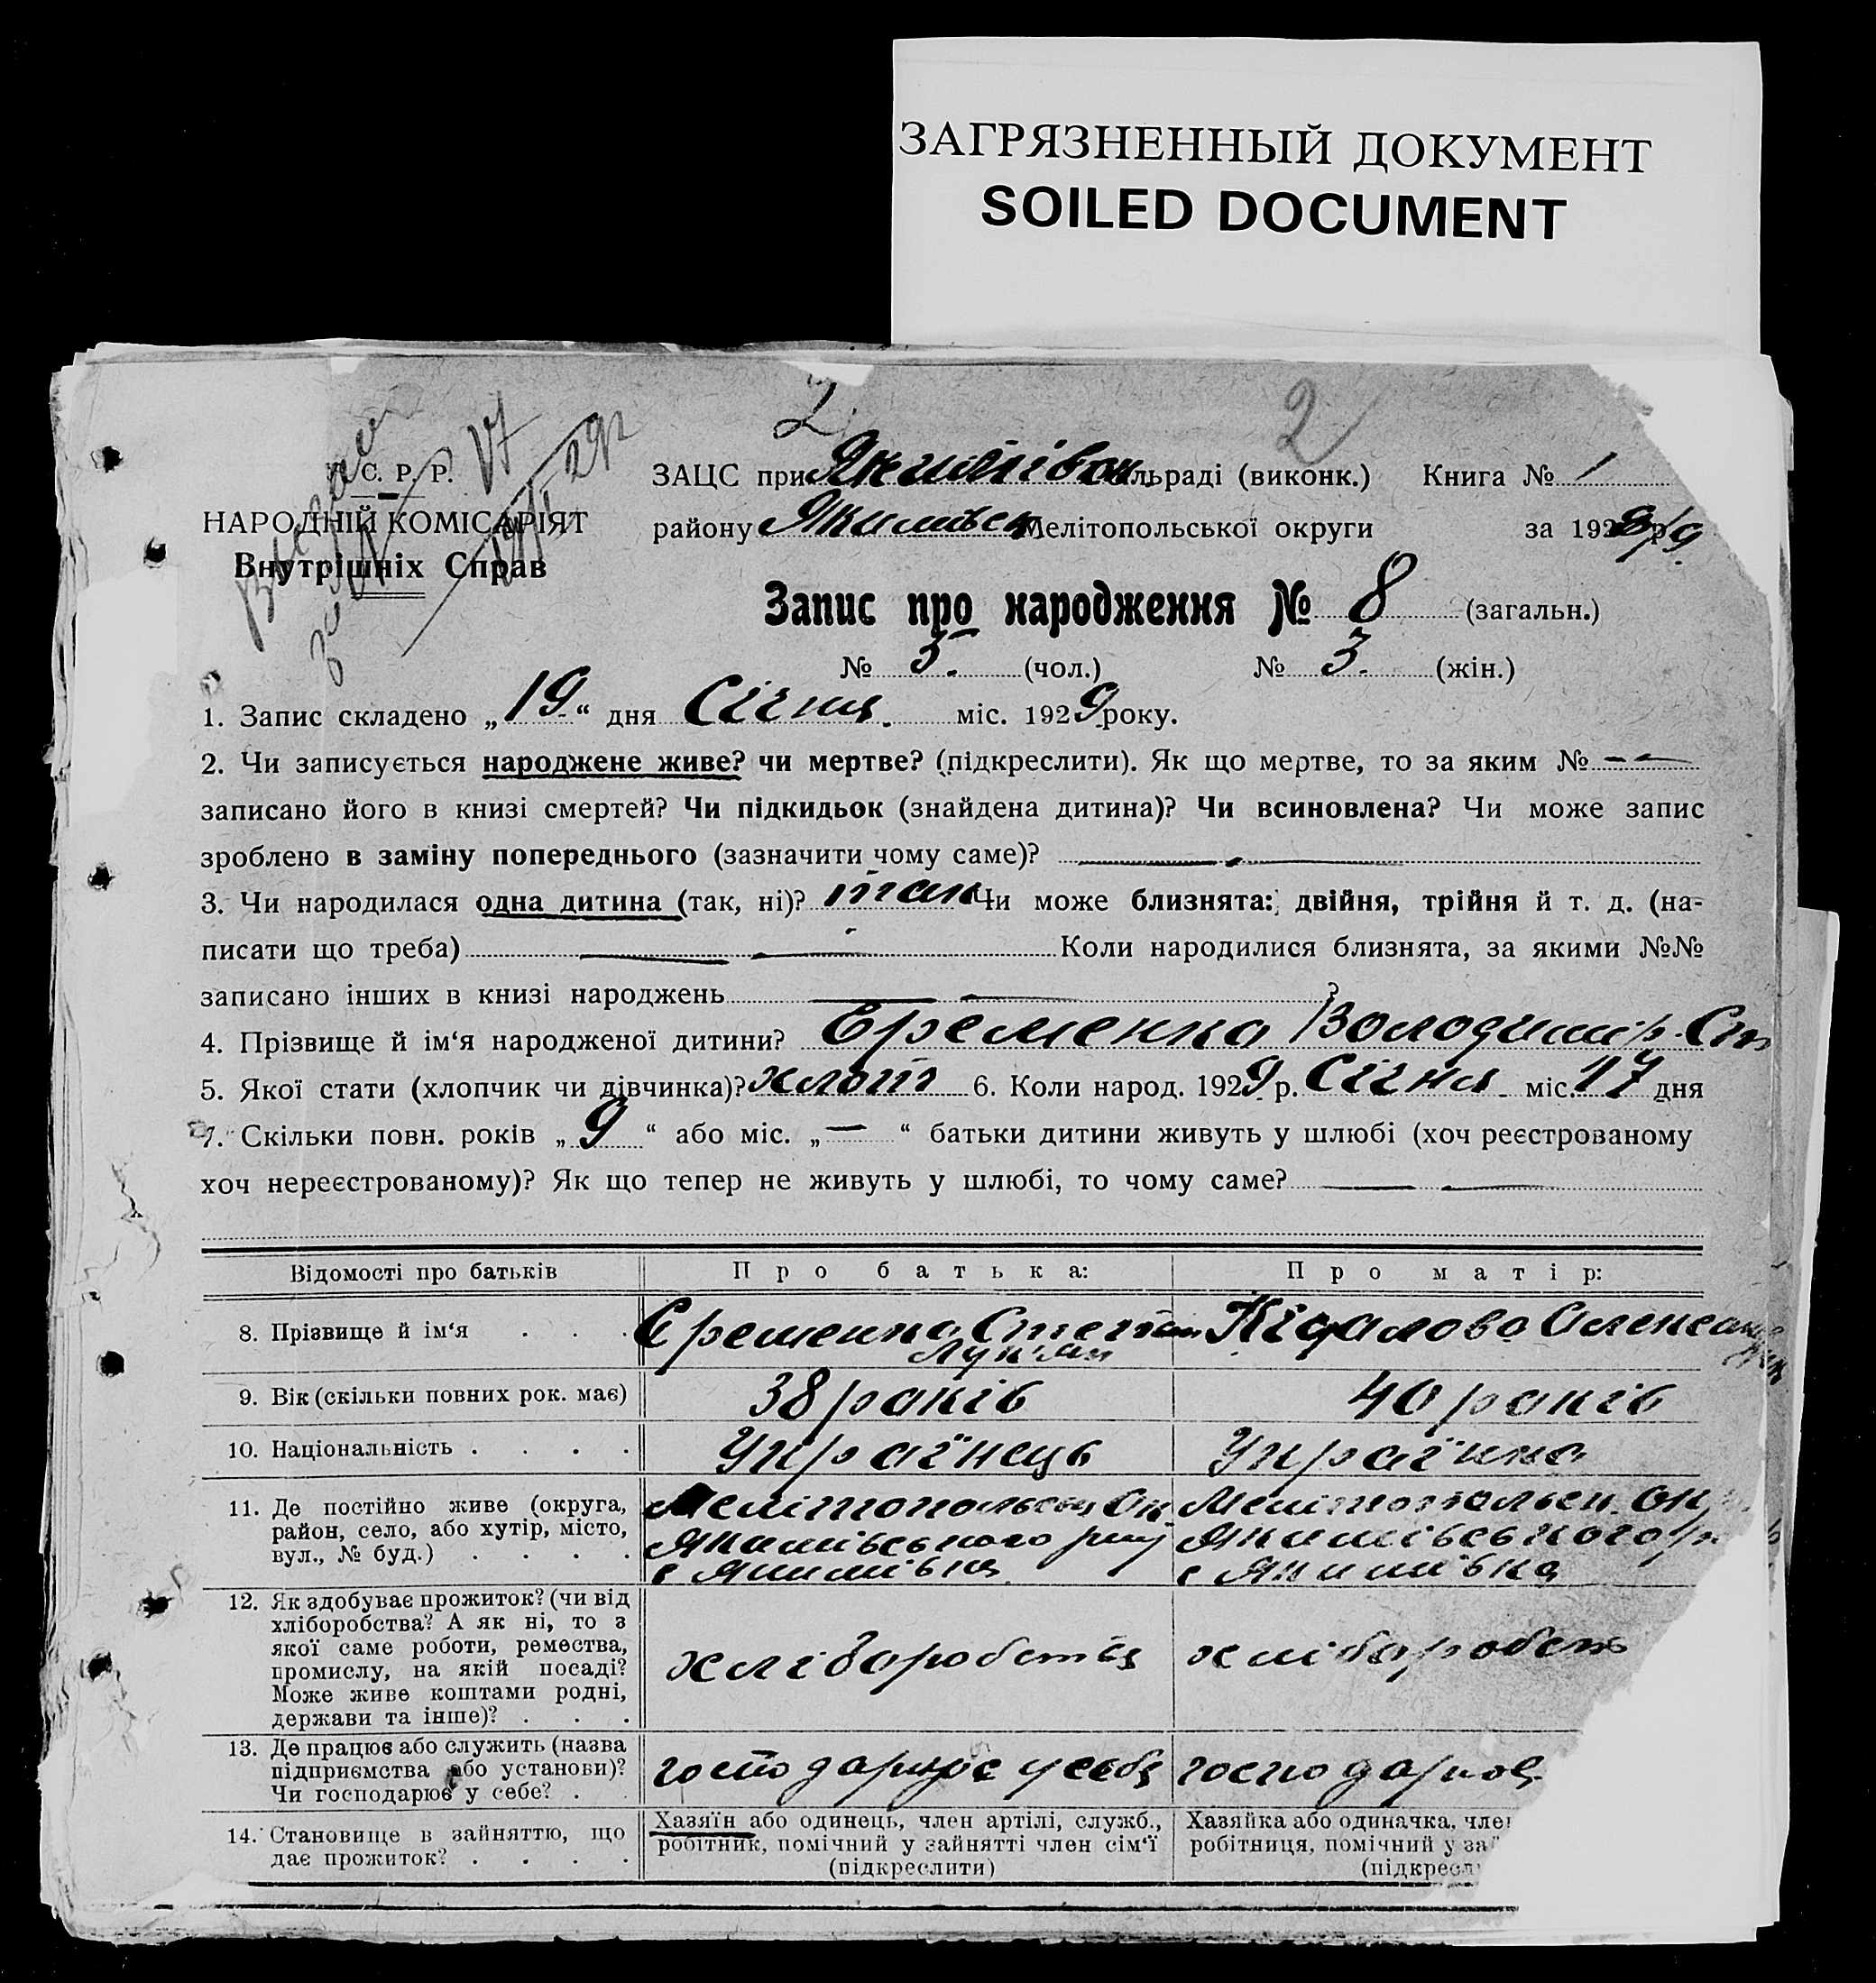 ЗАГРЯЗНЕННЫЙ ДОКУМЕНТ
SOILED DOCUMENT
2 2
С. Р. Р.
НАРОДНІЙ КОМІСАРІЯТ
Внутрішніх Справ
ЗАЦС при Якимівськ. сільраді (виконк.) Книга № 1
району Якимівськ Мелітопольської округи за 1928/9 р.
Запис про народження № 8 (загальн.)
№ 5. (чол.) № 3. (жін.)
1. Запис складено „19“ дня Січня. міс. 1929 року.
2. Чи записується народжене живе? чи мертве? (підкреслити). Як що мертве, то за яким № —
записано його в книзі смертей? Чи підкидьок (знайдена дитина)? Чи всиновлена? Чи може запис
зроблено в заміну попереднього (зазначити чому саме)? —
3. Чи народилася одна дитина (так, ні)? так Чи може близнята: двійня, трійня й т. д. (на-
писати що треба) — Коли народилися близнята, за якими №№
записано інших в книзі народжень — ?
4. Прізвище й ім‘я народженої дитини? Єременко Володимір Ст
5. Якої стати (хлопчик чи дівчинка)? хлоп 6. Коли народ. 1929 р. Січня міс. 17 дня
7. Скільки повн. років „9“ або міс. „—“ батьки дитини живуть у шлюбі (хоч реєстрованому
хоч нереєстрованому)? Як що тепер не живуть у шлюбі, то чому саме? —
Відомості про батьків Про батька: Про матір:
8. Прізвище й ім‘я . . . Єременко Степан Кідалово Олександ
Лук'ян
9. Вік (скільки повних рок. має) 38 років 40 років
10. Національність . . . . Українець Українка
11. Де постійно живе (округа,
район, село, або хутір, місто,
вул., № буд.) . . . .
Мелітопольськ Ок
Якимівського рай
с Якимівка
Мелітопольськ. Ок
Якимівського р
с Якимівка
12. Як здобуває прожиток? (чи від
хліборобства? А як ні, то з
якої саме роботи, ремества,
промислу, на якій посаді?
Може живе коштами родні,
держави та інше)? . . .
хліборобства хліборобств
13. Де працює або служить (назва
підприємства або установи)?
Чи господарює у себе? . .
господарює у себе господарює
14. Становище в зайняттю, що
дає прожиток? . . . .
Хазяїн або одинець, член артілі, служб.,
робітник, помічний у зайнятті член сім‘ї
(підкреслити)
Хазяйка або одиначка, чле
робітниця, помічний у за
(підкресл